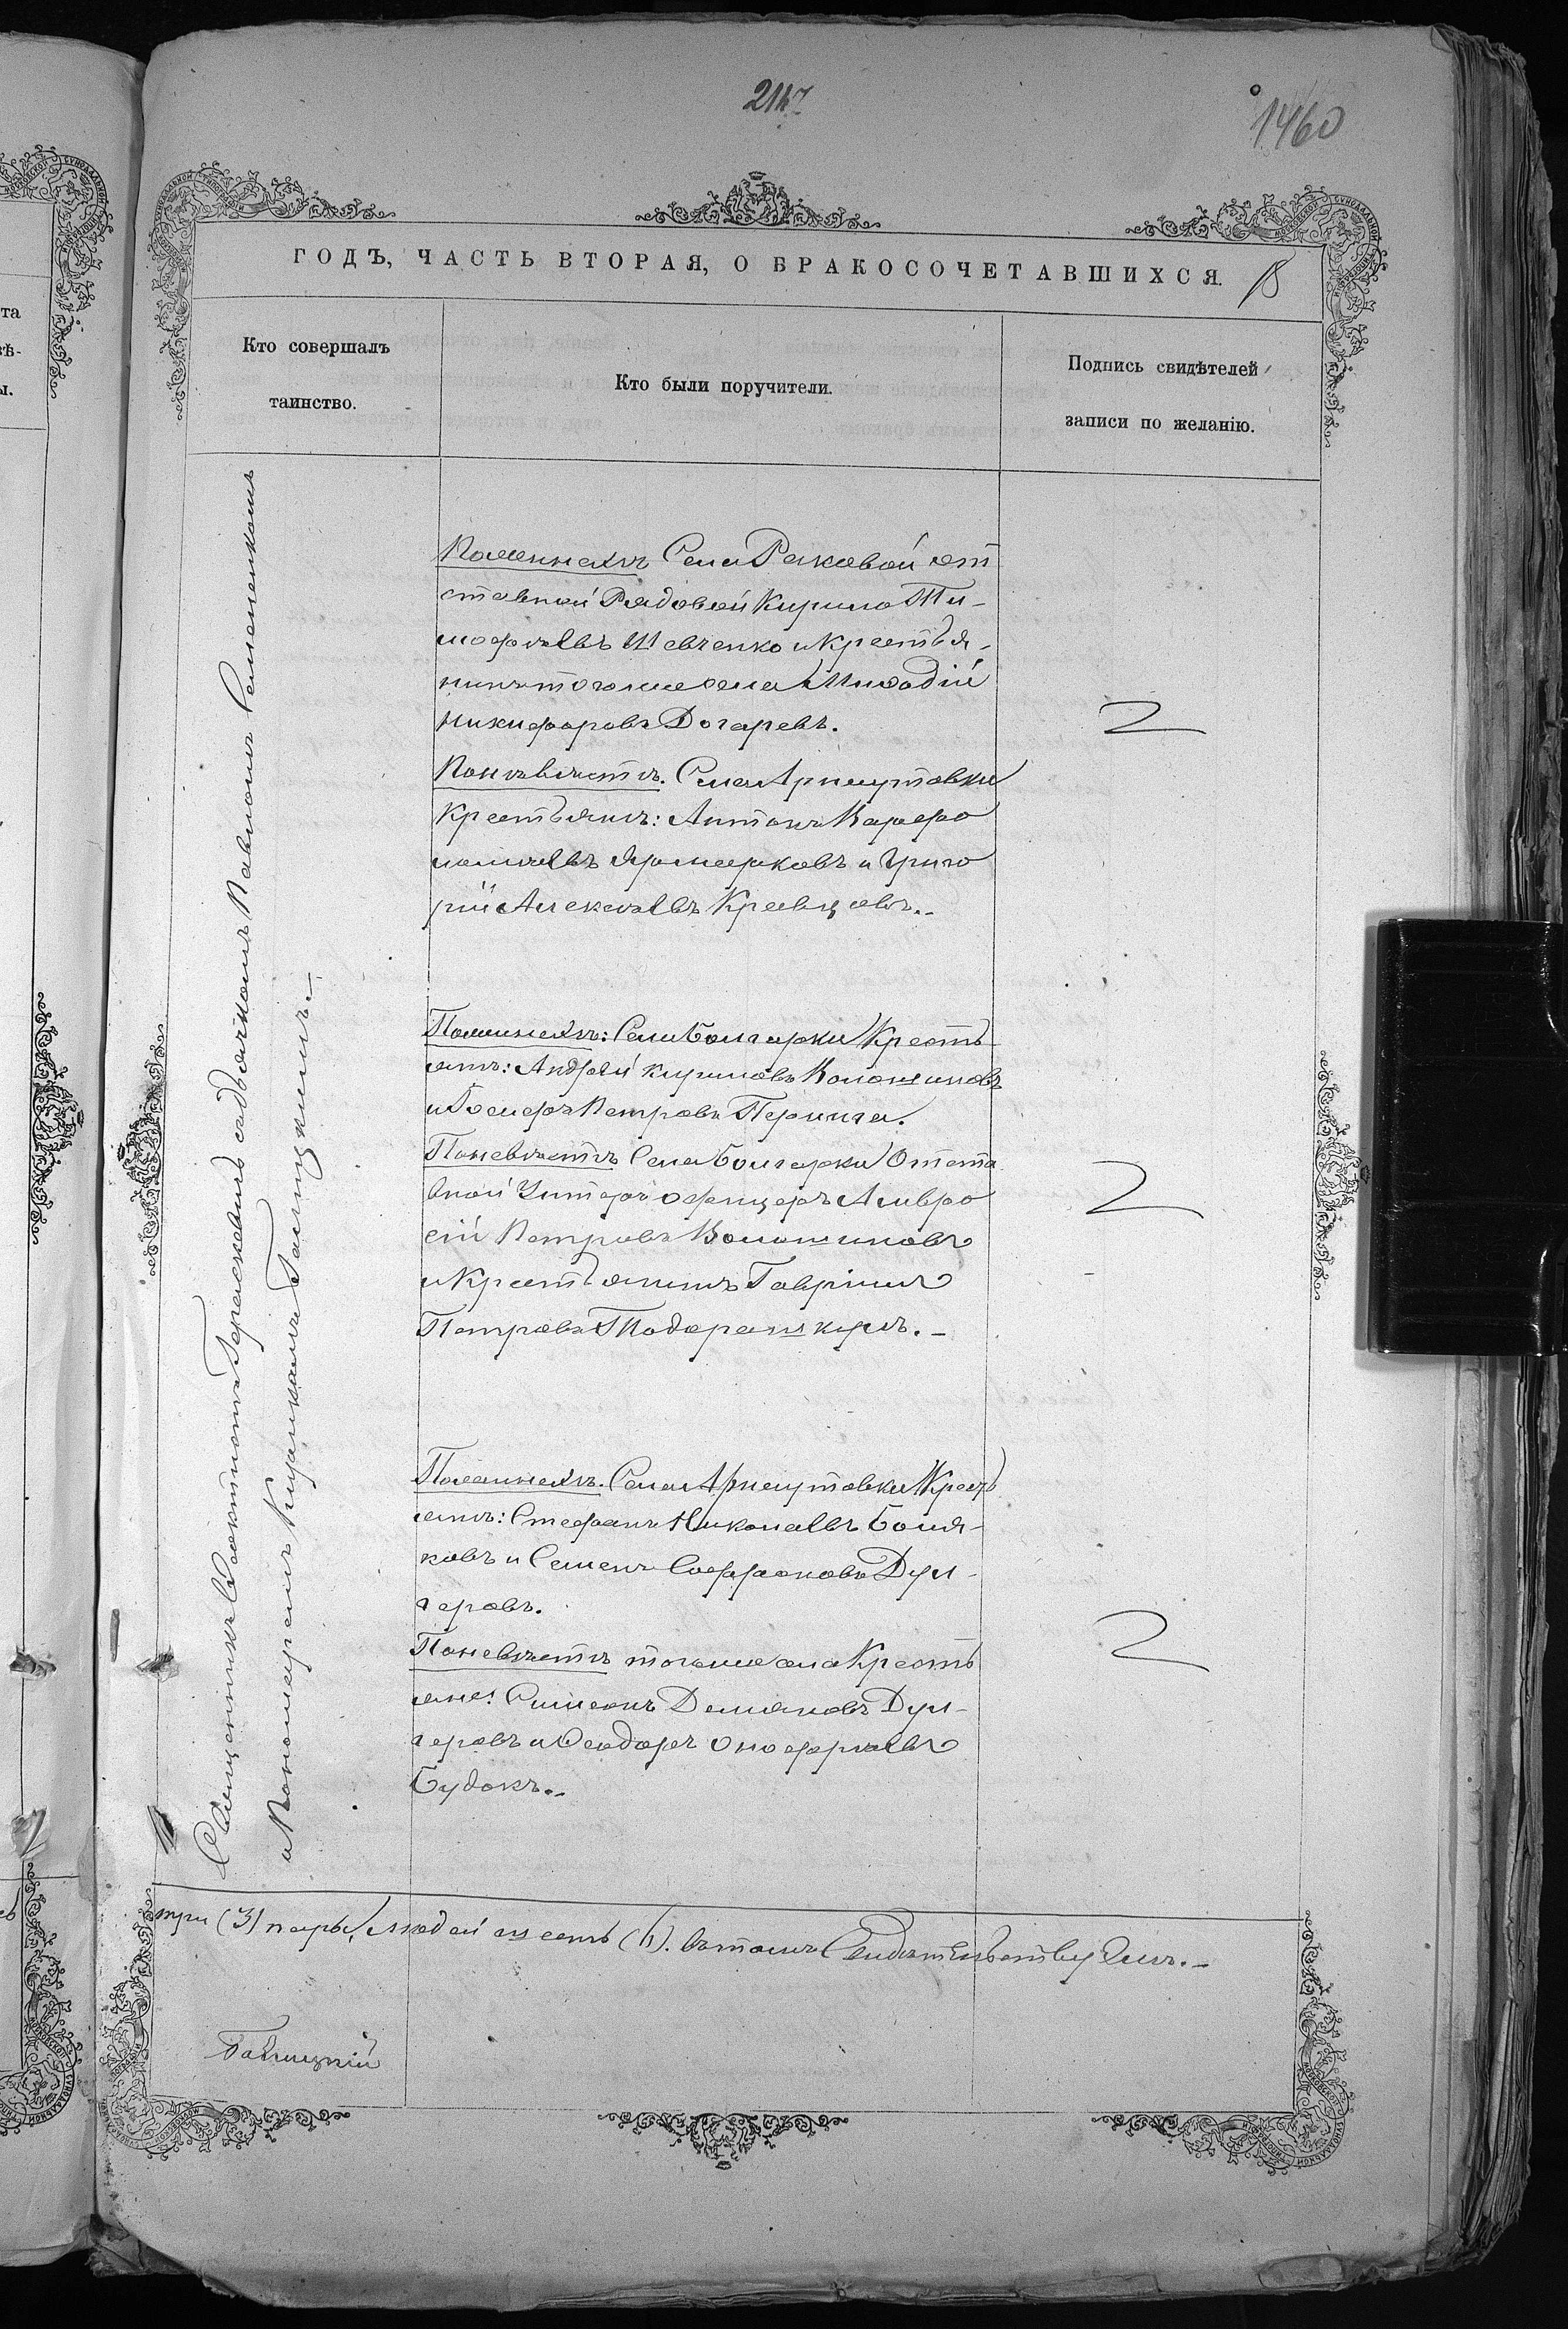 2147
1460
ГОДЪ, ЧАСТЬ ВТОРАЯ, О БРАКОСОЧЕТАВШИХСЯ.
Кто совершалъ
таинство.
Кто были поручители.
Подпись свидѣтелей
записи по желанію.
Священникъ Іоаннъ съ дьячкомъ Павломъ Семененкомъ
и Пономаремъ Галицкимъ.-
По женихѣ Села Раковой от
ставной Рядовой Кирило Ти-
мофѣевъ Шевченко и Крестья-
нинъ того же села
Никифоровъ Догаревъ.
По невѣстѣ. Села Арнаутовки
Крестьянъ: Антонъ Варфо
ломѣевъ и Григо
рій Алексѣевъ Кравцовъ.-
По женихѣ: Села Болгарки Кресть
янъ: Андрей Кириловъ Волошиновъ
и Іосифъ Петровъ
По невѣстѣ Села Болгарки Отста
вной Унтеръ офицеръ Амвро
сій Петровъ Волошиновъ
и Крестьянинъ Гавріилъ
Петровъ Тодорашкулъ.-
По женихѣ. Села Арнаутовки Кресть
янъ: Стефанъ Николаевъ Боля-
ковъ и Семенъ Соффроновъ Дул-
геровъ.
По невѣстѣ того же села Кресть
яне: Симеонъ Демяновъ Дул-
геровъ и Феодоръ Оноффріевъ
Будокъ.-
три (3) пары, людей шесть (6). въ томъ Свидѣтельствуемъ.-
Галицкій
та